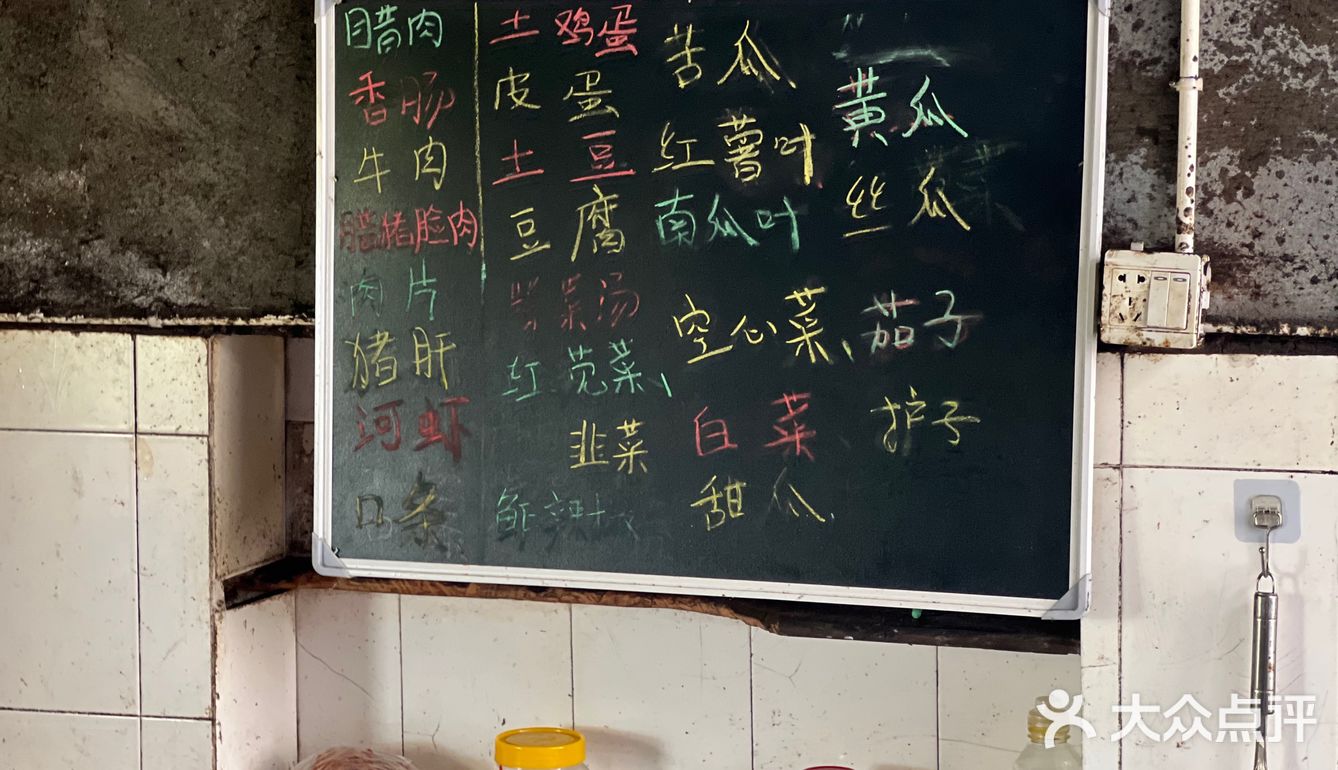 腊肉
香肠
牛肉
腊猪脸肉
肉片
猪肝
河虾
口条
土鸡蛋
皮蛋
土豆
豆腐
紫菜汤
红苋菜、
韭菜
苦瓜
红薯叶
南瓜叶
空心菜、
白菜、
甜瓜
黄瓜
丝瓜
茄子
护子
大众点评